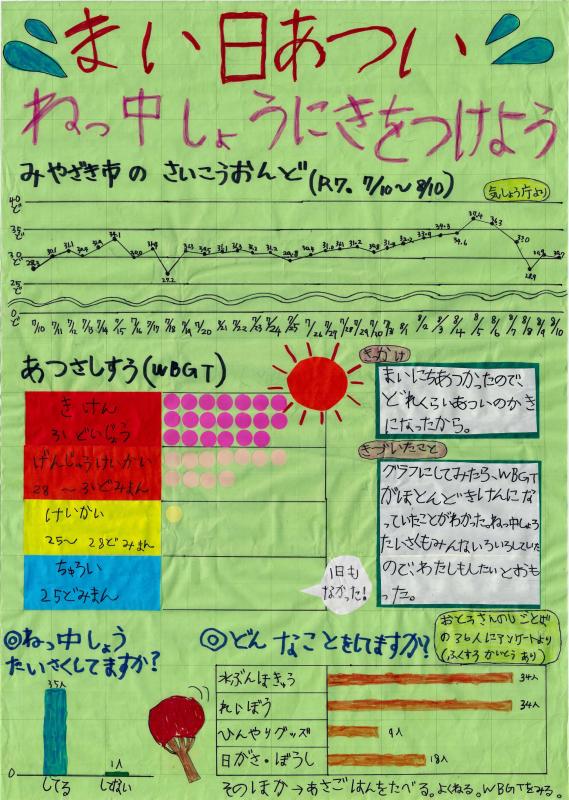 まい日あつい
ねっ中しょうにきをつけよう
みやざき市の さいこうおんど(R7. 7/10~8/10)
気しょう庁より
40ど
35ど
30ど
25ど
0ど
35.1
27.2
29.8
34.6
37.4
36.3
33.0
28.9
7/10 7/11 7/12 7/13 7/14 7/15 7/16 7/17 7/18 7/19 7/20 7/21 7/22 7/23 7/24 7/25 7/26
8/1 8/2 8/3 8/4 8/5 8/6 8/7 8/8 8/9 8/10
あつさしすう(WBGT)
きけん
31どいじょう
げんじゅうけいかい
28~31どみまん
けいかい
25~28どみまん
ちゅうい
25どみまん
1日も
なかった!
きっかけ
まいにちあつかったので、
どれくらいあついのかき
になったから。
きづいたこと
グラフにしてみたら、WBGT
がほとんどきけんにな
っていたことがわかった。ねっ中しょう
たいさくもみんないろいろしていた
ので、わたしもしたいとおも
った。
◎ねっ中しょう
たいさくしてますか?
35人
1人
0
してる
してない
◎どんなことをしてますか?
おとうさんのしごとば
の36人にアンケートより
(ふくすうかいとうあり)
水ぶんほきゅう
34人
れいぼう
34人
ひんやりグッズ
9人
日がさ・ぼうし
18人
そのほか→あさごはんをたべる。よくねる。WBGTをみる。